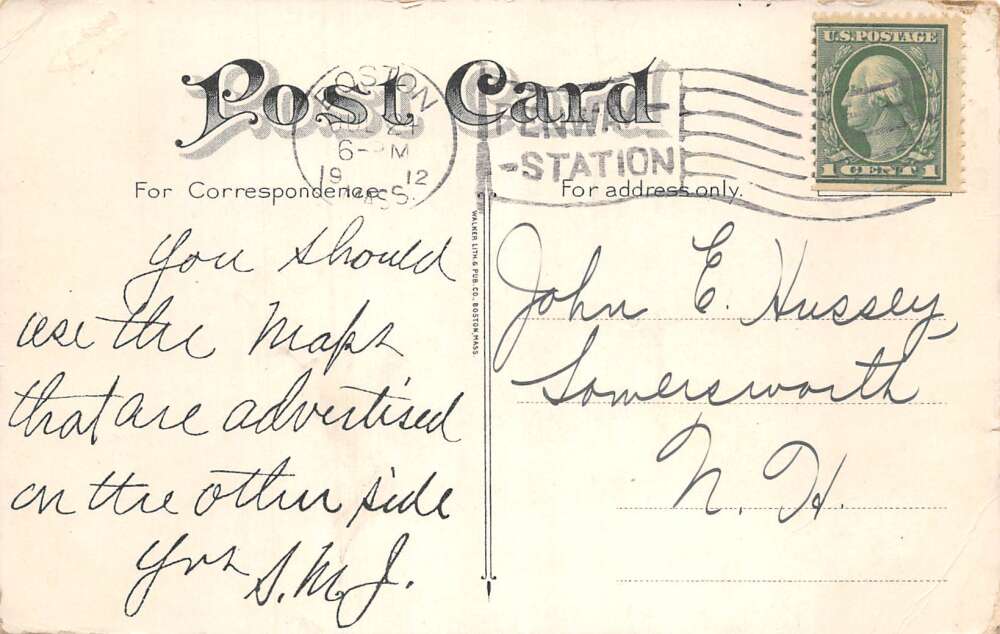 Post Card
BOSTON
24
6- M
19 12
MASS.
FENWAY
-STATION
U.S. POSTAGE
1 CENT 1
For Correspondence.
For address only.
WALKER LITH. & PUB. CO., BOSTON, MASS.
You should
use the Maps
that are advertised
on the other side
Yrs
S.M.J.
John E. Hussey
Somersworth
N. H.